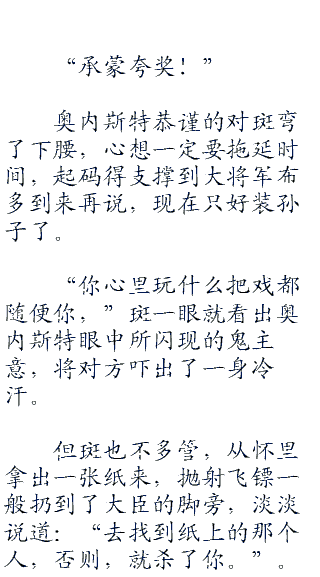 “承蒙夸奖！”
奥内斯特恭谨的对斑弯
了下腰，心想一定要拖延时
间，起码得支撑到大将军布
多到来再说，现在只好装孙
子了。
“你心里玩什么把戏都
随便你，”斑一眼就看出奥
内斯特眼中所闪现的鬼主
意，将对方吓出了一身冷
汗。
但斑也不多管，从怀里
拿出一张纸来，抛射飞镖一
般扔到了大臣的脚旁，淡淡
说道：“去找到纸上的那个
人，否则，就杀了你。”。